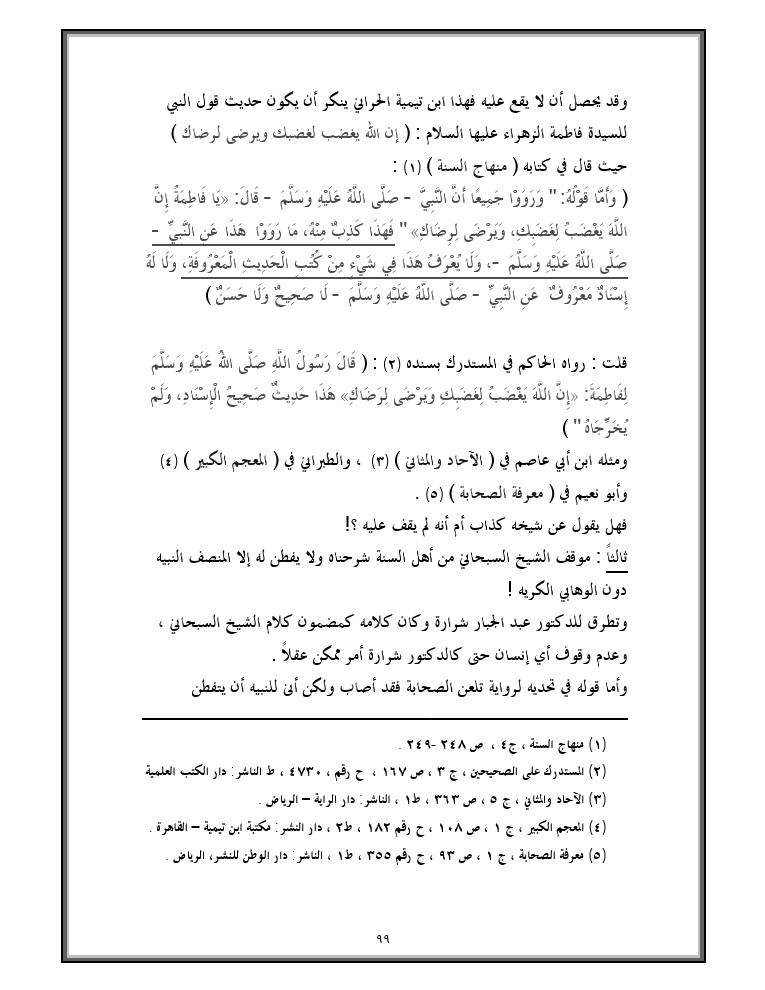 وقد يحصل أن لا يقع عليه فهذا ابن تيمية الحراني ينكر أن يكون حديث قول النبي
للسيدة فاطمة الزهراء عليها السلام : ( إن الله يغضب لغضبك ويرضى لرضاك )
حيث قال في كتابه ( منهاج السنة ) (١) :
( وَأَمَّا قَوْلُهُ: " وَرَوَوْا جَمِيعًا أَنَّ النَّبِيَّ – صَلَّى اللَّهُ عَلَيْهِ وَسَلَّمَ – قَالَ: «يَا فَاطِمَةُ إِنَّ
اللَّهَ يَغْضَبُ لِغَضَبِكِ، وَيَرْضَى لِرِضَاكِ» " فَهَذَا كَذِبٌ مِنْهُ، مَا رَوَوْا هَذَا عَنِ النَّبِيِّ –
صَلَّى اللَّهُ عَلَيْهِ وَسَلَّمَ –، وَلَا يُعْرَفُ هَذَا فِي شَيْءٍ مِنْ كُتُبِ الْحَدِيثِ الْمَعْرُوفَةِ، وَلَا لَهُ
إِسْنَادٌ مَعْرُوفٌ عَنِ النَّبِيِّ – صَلَّى اللَّهُ عَلَيْهِ وَسَلَّمَ – لَا صَحِيحٌ وَلَا حَسَنٌ )
قلت : رواه الحاكم في المستدرك بسنده (٢) : ( قَالَ رَسُولُ اللَّهِ صَلَّى اللهُ عَلَيْهِ وَسَلَّمَ
لِفَاطِمَةَ: «إِنَّ اللَّهَ يَغْضَبُ لِغَضَبِكِ وَيَرْضَى لِرِضَاكِ» هَذَا حَدِيثٌ صَحِيحُ الْإِسْنَادِ، وَلَمْ
يُخَرِّجَاهُ " )
ومثله ابن أبي عاصم في ( الآحاد والمثاني ) (٣) ، والطبراني في ( المعجم الكبير ) (٤)
وأبو نعيم في ( معرفة الصحابة ) (٥) .
فهل يقول عن شيخه كذاب أم أنه لم يقف عليه ؟!
ثالثاً : موقف الشيخ السبحاني من أهل السنة شرحناه ولا يفطن له إلا المنصف النبيه
دون الوهابي الكريه !
وتطرق للدكتور عبد الجبار شرارة وكان كلامه كمضمون كلام الشيخ السبحاني ،
وعدم وقوف أي إنسان حتى كالدكتور شرارة أمر ممكن عقلاً .
وأما قوله في تحديه لرواية تلعن الصحابة فقد أصاب ولكن أنى للنبيه أن يتفطن
(١) منهاج السنة ، ج٤ ، ص ٢٤٨ -٢٤٩ .
(٢) المستدرك على الصحيحين ، ج ٣ ، ص ١٦٧ ، ح رقم ، ٤٧٣٠ ، ط الناشر: دار الكتب العلمية
(٣) الآحاد والمثاني ، ج ٥ ، ص ٣٦٣ ، ط١ ، الناشر: دار الراية – الرياض .
(٤) المعجم الكبير ، ج ١ ، ص ١٠٨ ، ح رقم ١٨٢ ، ط٢ ، دار النشر: مكتبة ابن تيمية – القاهرة .
(٥) معرفة الصحابة ، ج ١ ، ص ٩٣ ، ح رقم ٣٥٥ ، ط١ ، الناشر: دار الوطن للنشر، الرياض .
٩٩